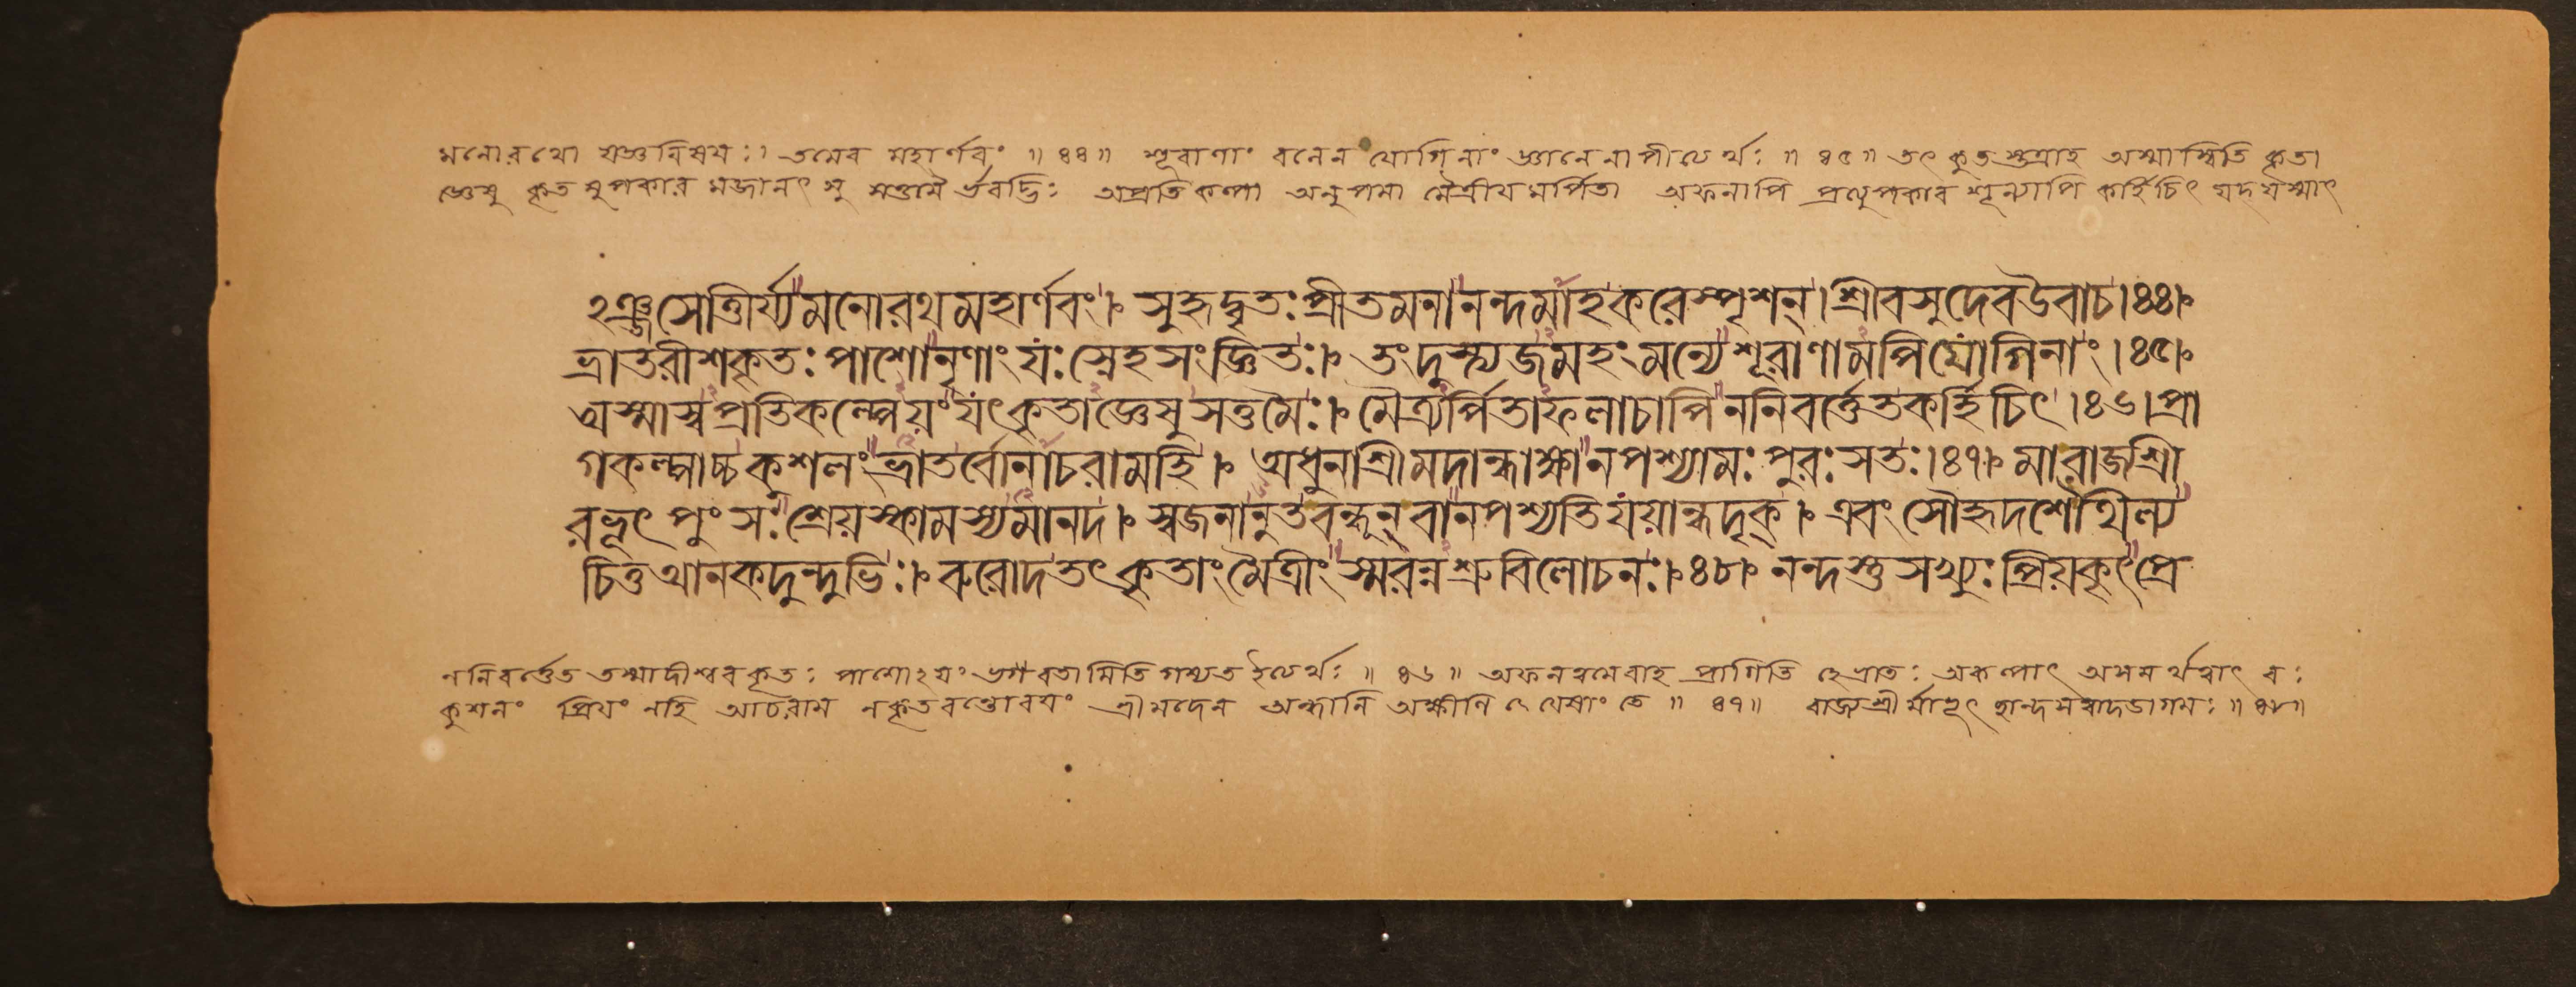 মনোরথো যস্তুবিষয়ঃ। তমেব মহার্ণবং ॥ ৪৪ ॥ শূরাণাং বলেন যোগিনাং জ্ঞানেনাপীত্যর্থঃ ॥ ৪৫ ॥ তৎ কুতস্তত্রাহ অস্মাস্বিতি কৃতা
জ্ঞেষু কৃতমুপকারমজানৎসু সত্তমৈর্ভবদ্ভিঃ অপ্রতিকল্পা অনুপমা মৈত্রীয়মর্পিতা অফলাপি প্রত্যুপকারশূন্যাপি কর্হিচিৎ যদ্যস্মাৎ
ঽঞ্জসোত্তীর্য্যমনোরথমহার্ণবং। সুহৃদ্বৃতঃপ্রীতমনানন্দমাহকরেস্পৃশন্। শ্রীবসুদেবউবাচ।৪৪।
ভ্রাতরীশকৃতঃপাশোনৃণাংযঃস্নেহসংজ্ঞিতঃ। তংদুস্ত্যজমহংমন্যেশূরাণামপিযোগিনাং।৪৫।
অস্মাস্বপ্রতিকল্পেয়ংযৎকৃতাজ্ঞেষুসত্তমৈঃ। মৈত্র্যর্পিতাফলাচাপিননিবর্ত্তেতকর্হিচিৎ।৪৬। প্রা
গকল্পাচ্চকুশলংভ্রাতর্বোনাচরামহি। অধুনাশ্রীমদান্ধাক্ষানপশ্যামঃপুরঃসতঃ।৪৭। মারাজ্যশ্রী
রভূৎপুংসঃশ্রেয়স্কামস্যমানদ। স্বজনানুতবন্ধূন্বানপশ্যতিযয়ান্ধদৃক্। এবংসৌহৃদশৈথিল্য
চিত্তআনকদুন্দুভিঃ। রুরোদতৎকৃতাংমৈত্রীংস্মরন্নশ্রুবিলোচনঃ।৪৮। নন্দস্তুসখ্যুঃপ্রিয়কৃৎপ্রে
ননিবর্ত্তেত তস্মাদীশ্বরকৃতঃ পাশোঽয়ং ভগবতামিতি গম্যত ইত্যর্থঃ ॥ ৪৬ ॥ অফলত্বমেবাহ প্রাগিতি হেভ্রাতঃ অকল্পাৎ অসমর্থত্বাৎ বঃ
কুশলং প্রিয়ং নহি আচরাম নকৃতবন্তোবয়ং শ্রীমদেন অন্ধানি অক্ষীণি যেষাং তে ॥ ৪৭ ॥ রাজ্যশ্রীর্মাভূৎ ॥ ৪৮ ॥